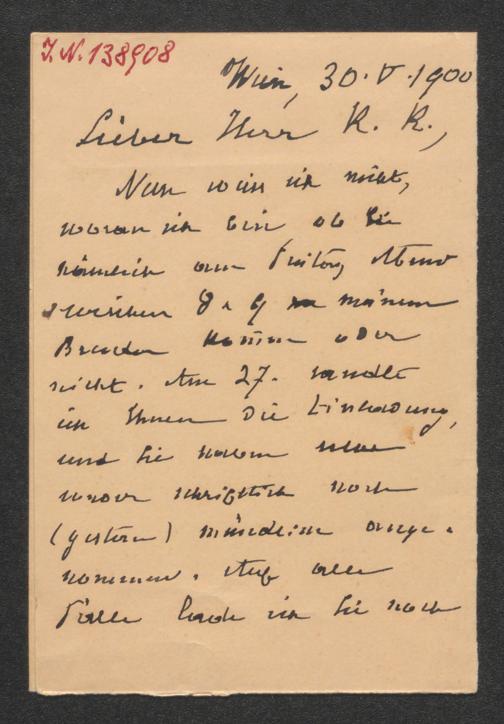 J. N. 138908
Wien, 30. V. 1900
Lieber Herr K. K.,
Nun weiss ich nicht,
woran ich bin ob Sie
nämlich am Freitag Abend
zwischen 8 & 9 zu meinem
Bruder kommen oder
nicht. Am 27. sandte
ich Ihnen die Einladung,
und Sie haben
weder schriftlich noch
(gestern) mündlich ange-
nommen. Auf alle
Fälle lade ich Sie noch